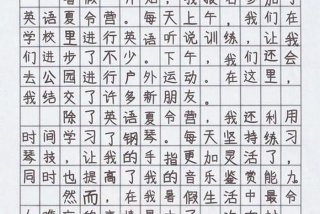 英语夏令营。每天上午，我们在
学校里进行英语听说训练，让我
们进步了不少。下午，我们还会
去公园进行户外运动。在这里，
我结交了许多新朋友。
除了英语夏令营，我还利用
时间学习了钢琴。每天坚持练习
琴技，让我的手指更加灵活了，
同时也提高了我的音乐鉴赏能九
然而，在我暑假生活中最令